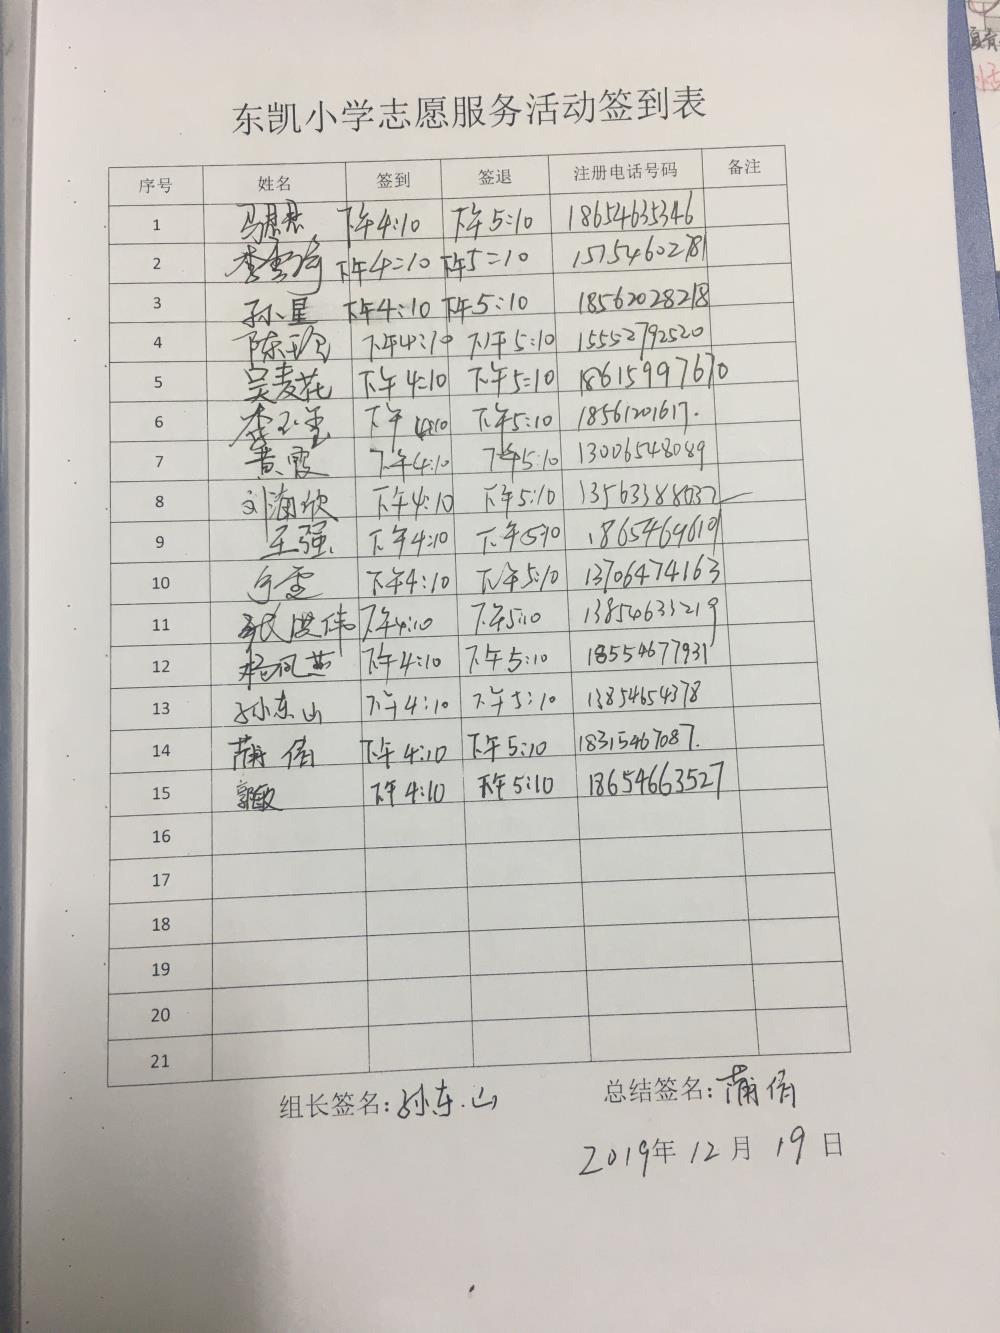 东凯小学志愿服务活动签到表
序号 姓名 签到 签退 注册电话号码 备注
1 下午4:10 下午5:10 18654635346
2 下午4:10 下午5:10 15754602781
3 孙星 下午4:10 下午5:10 18562028218
4 陈玲 下午4:10 下午5:10 15552792520
5 吴麦花 下午4:10 下午5:10 18615997670
6 李玉玺 下午4:10 下午5:10 18561201617.
7 黄霞 下午4:10 下午5:10 13006548089
8 刘海欣 下午4:10 下午5:10 13563388032
9 王强 下午4:10 下午5:10 18654696101
10 下午4:10 下午5:10 13706474163
11 张洪伟 下午4:10 下午5:10 13854633219
12 杨凤燕 下午4:10 下午5:10 18554677931
13 孙东山 下午4:10 下午5:10 13854654378
14 蒲倩 下午4:10 下午5:10 18315467087.
15 郭敏 下午4:10 下午5:10 18654663527
16
17
18
19
20
21
组长签名:孙东山 总结签名:蒲倩
2019年12月19日